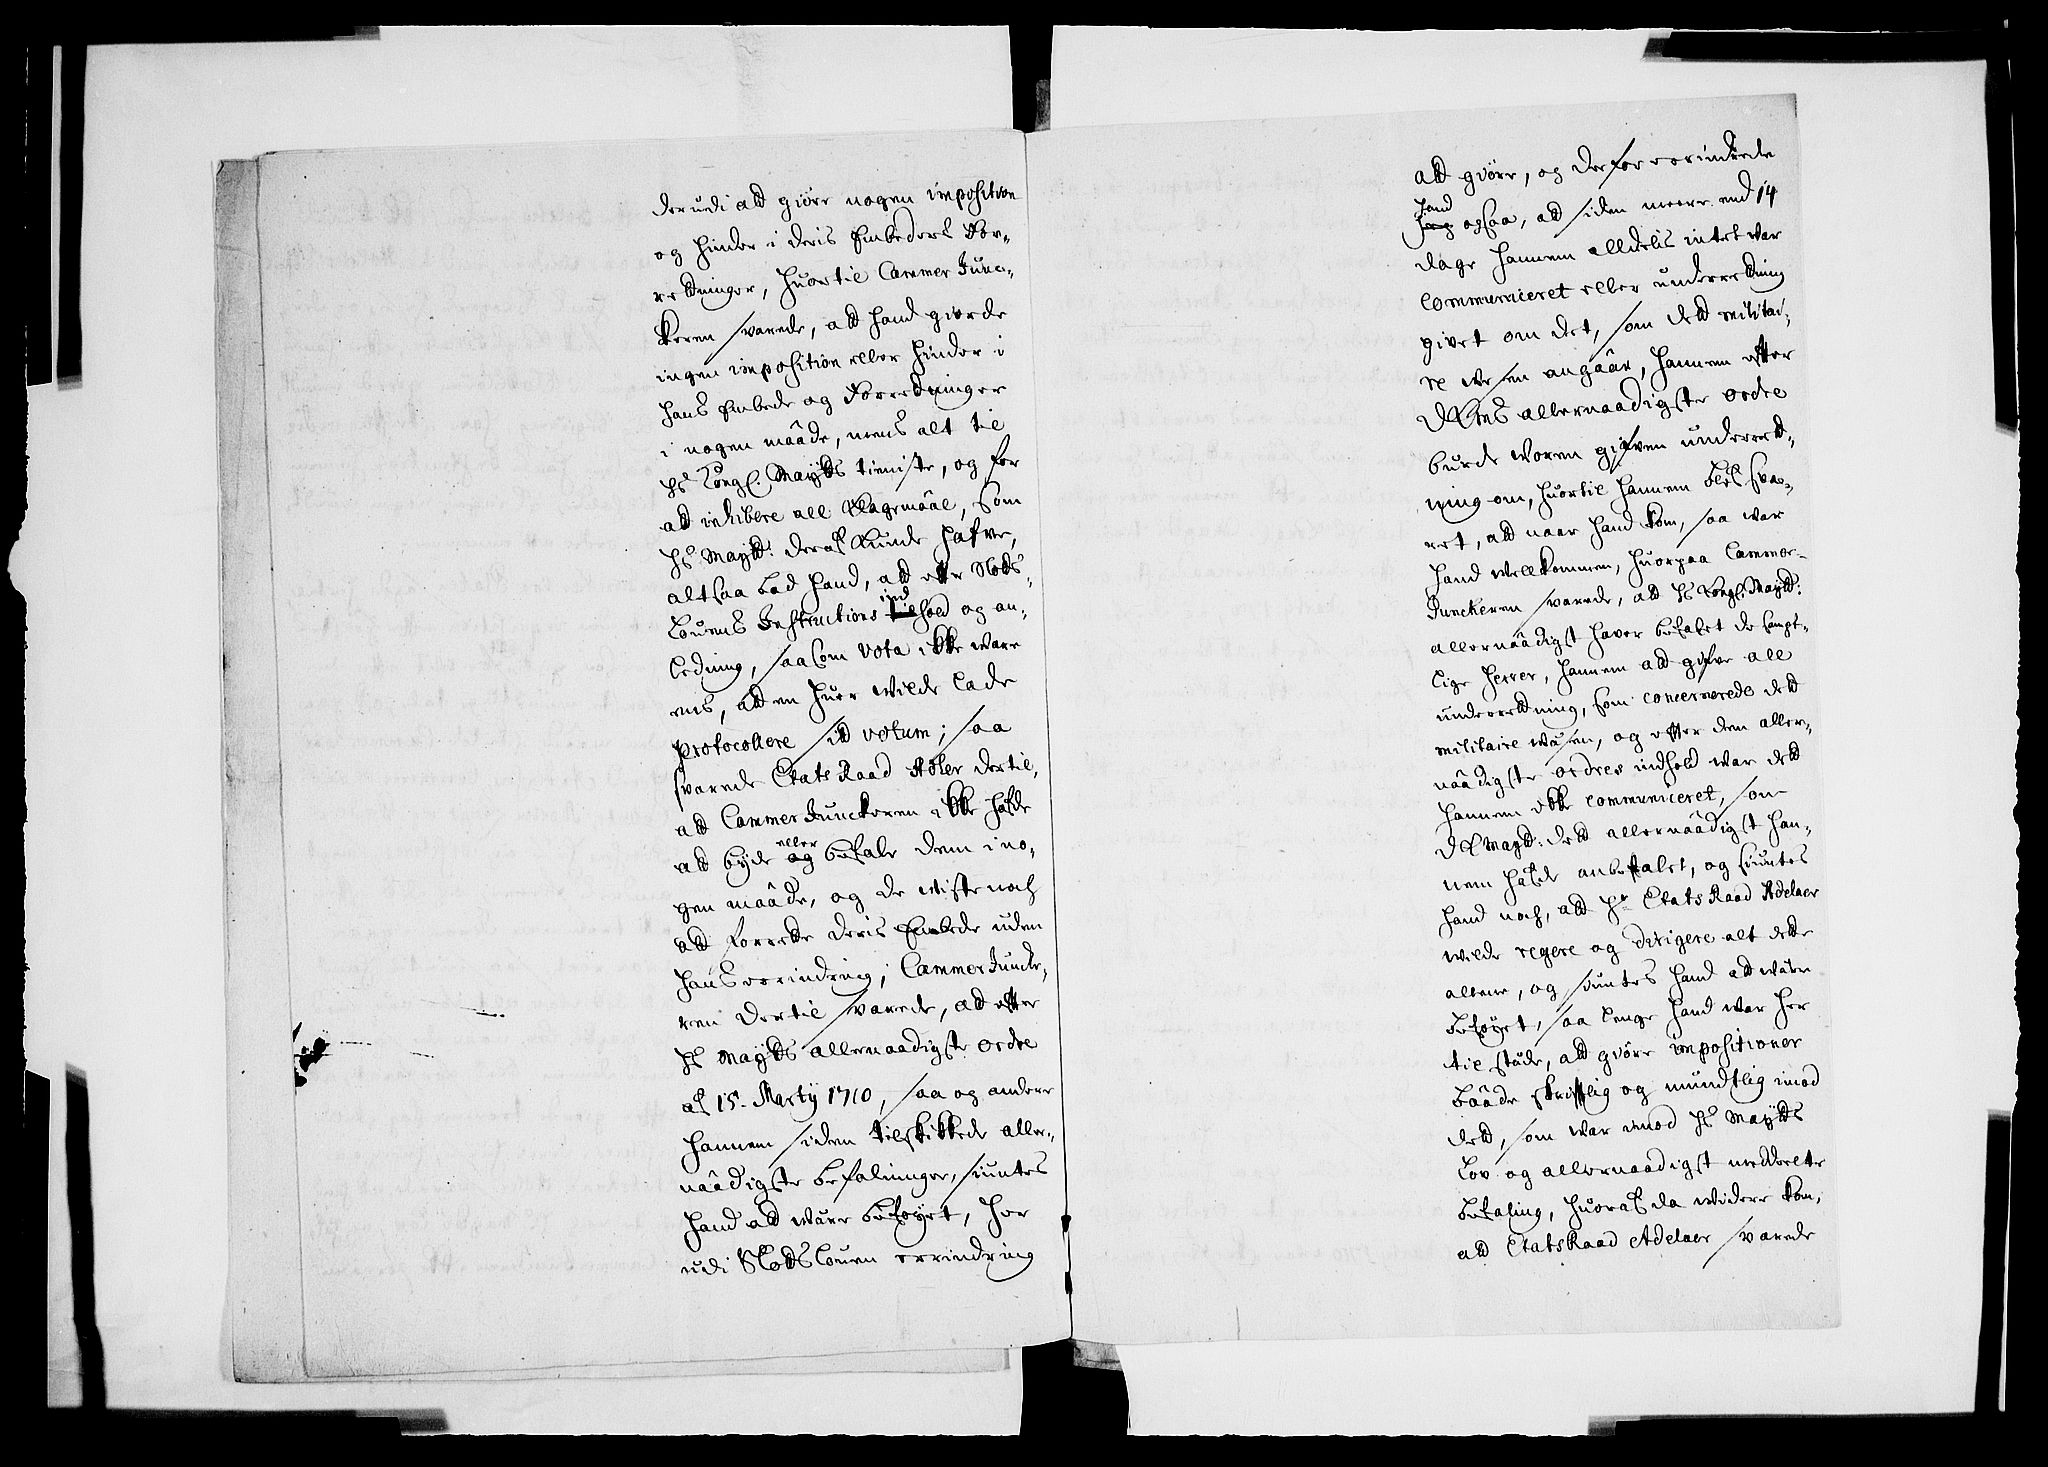 der udi att giöre nogen imposition
og hinder i deris Embeders For-
retninger, huortil Cammer Junc-
keren svarede, att hand giorde
ingen imposition eller hinder i
hans Embede og Forretninger
i nogen maade, mens alt til
Hs Kongl. Maytts tieniste, og for
at inhibere all Klagemaal, som
Hs Maytt: deraf kunde hafve,
altsaa bad hand, att efter Slots-
Lovens Instructions indhold og an-
ledning, saasom vota ikke ware
ens, att en huer wilde lade
protocollere sit votum; saa
svarede Etats Raad Adler dertil,
att Cammer Junckeren ikke hafde
att byde eller befale dem i no-
gen maade, og de wiste noch
att forrette deris Embede uden
hans errindring; Cammer Juncke-
ren dertil svarede, att efter
Hs Maytts allernaadigste ordre
af 15. Marty 1710, saa og andere
hannem siden tilskikkede aller-
naadigste befalninger, siuntes
hand att være beföyet, her
udi Slotslouen errindring
att giöre, og derfor errindrede
hand ogsaa, at siden meere end 14
dage hannem alldelis intet war
communiceret eller underretning
givet om det, som dett militai-
re wesen angaar, hannem efter
dens allernaadigste ordre
burde woren gifven underret-
ning om, huortil hannem blef sva-
ret, att naar hand kom, saa war
hand wellkommen, huorpaa Cammer-
Junckeren svarede, att Hs Kongl: Maytt:
allernaadigst haver befalet de sampt-
lige Herrer, hannem att gifve all
underretning, som concernerede dett
militaire wæsen, og efter den aller-
naadigste ordres indhold war dett
hannem ikke communiceret, som
Maytt: dett allernaadigst han-
nem hafde anbefalet, og siuntes
hand noch, att Hr Etats Raad Adelaer
wilde regere og dirigere alt dette
allene, og siuntes hand att være
beföyet, saa lenge hand war her
til stæde, att giöre impositioner
baade skriftlig og mundtlig imod
dett, som war imod Hs Maytts
Lov og allernaadigst meddeelte
befaling, huoraf da widere kom,
att Etats Raad Adelaer svarede